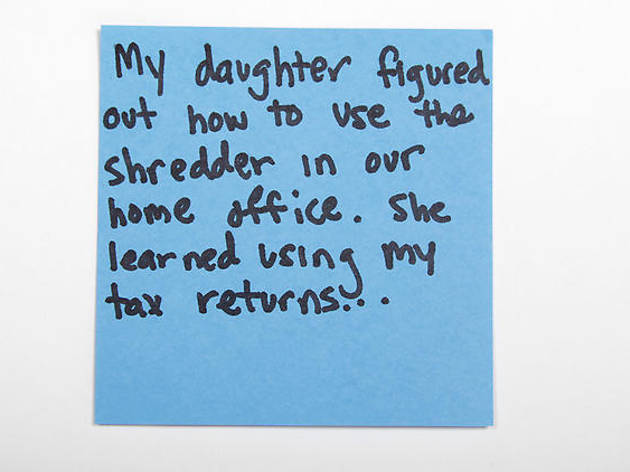 My daughter figured
out how to use the
shredder in our
home office. She
learned using my
tax returns...